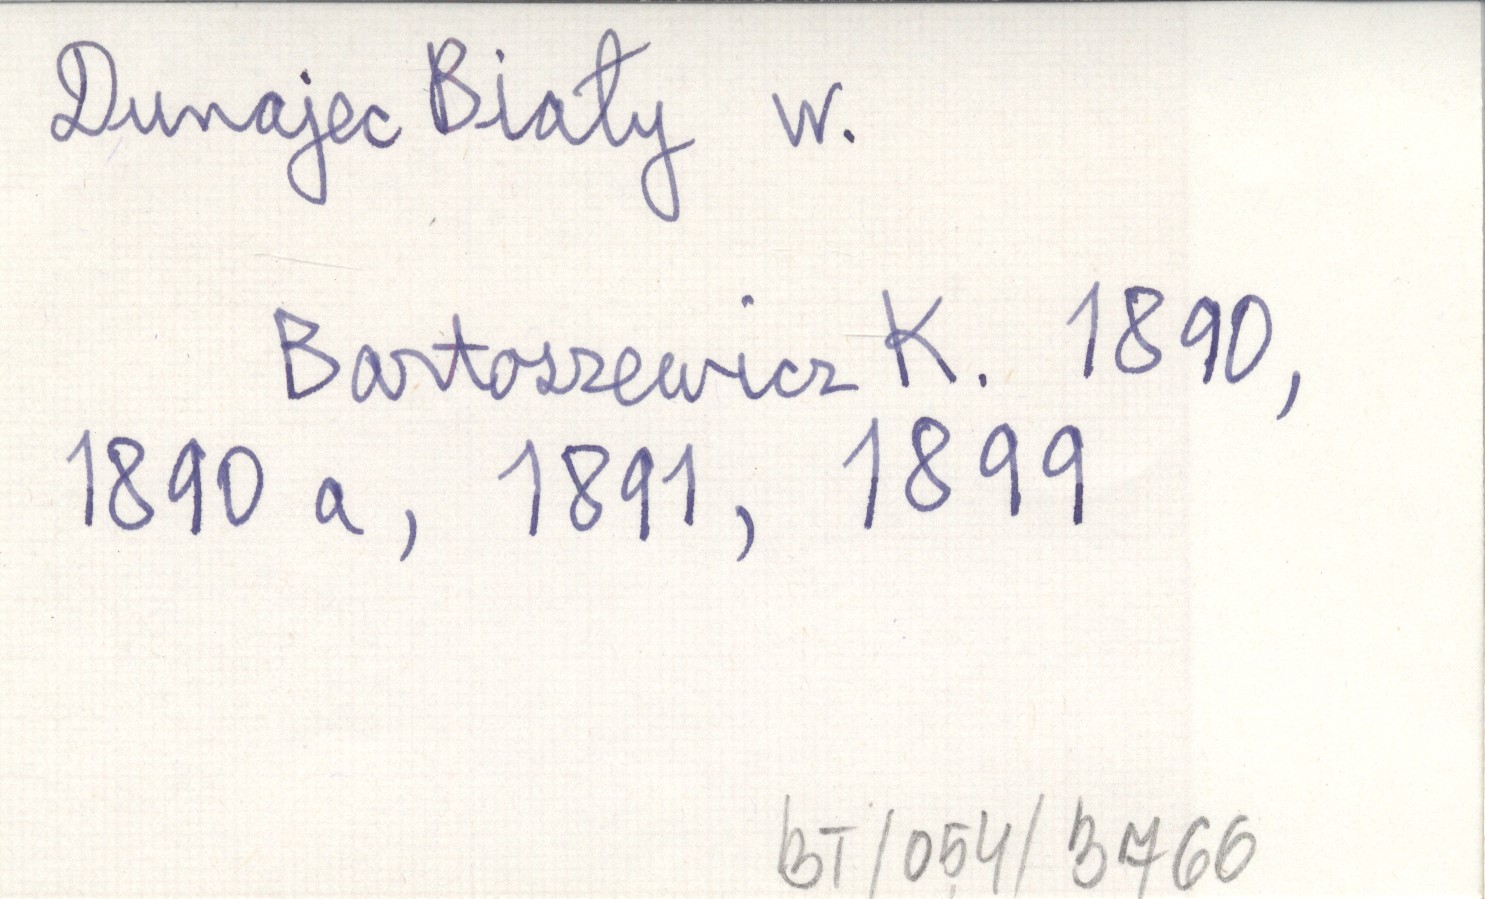 Dunajec Biały w.
Bartoszewicz K. 1890,
1890 a, 1891, 1899
BT/054/3766